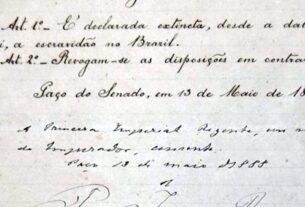 Art. 1º- E' declarada extincta, desde a da
i, a escravidão no Brazil.
Art. 2º- Revogam-se as disposições em contra
Paço do Senado, em 13 de Maio de 18
A Princeza Imperial Regente, em n
do Imperador, consente.
Paço 13 de maio de 1888